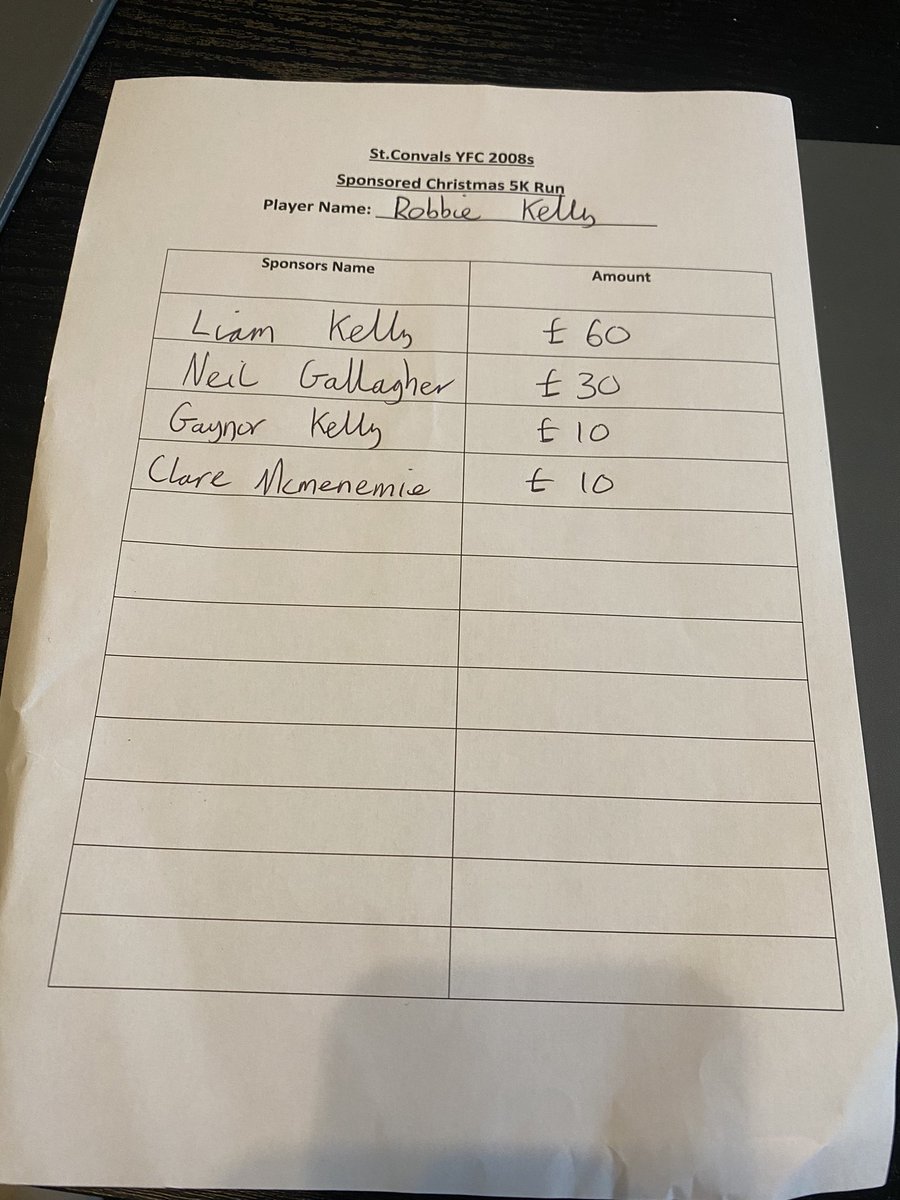 St.Convals YFC 2008s
Sponsored Christmas 5K Run
Player Name: Robbie Kelly
Sponsors Name Amount
Liam Kelly £ 60
Neil Gallagher £ 30
Gaynor Kelly £ 10
Clare Mcmenemie £ 10